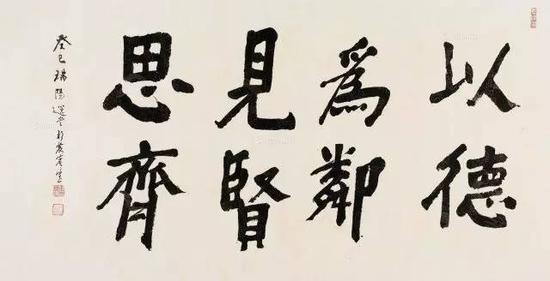 以德
為鄰
見賢
思齊
癸巳瑞陽